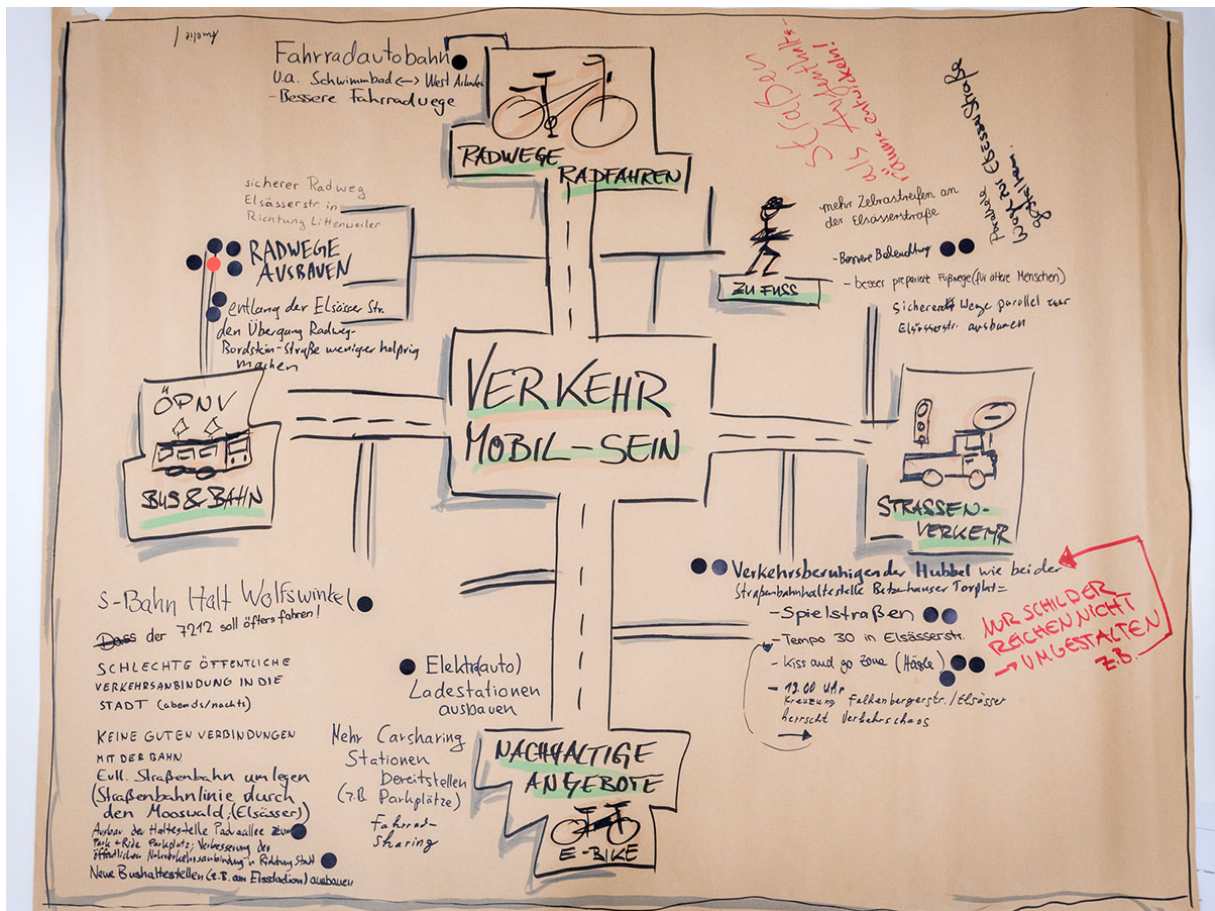 Amelie
Fahrradautobahn
u.a. Schwimmbad <-> West
- Bessere Fahrradwege
RADWEGE
RADFAHREN
Straßen
als Aufenthalts-
räume entwickeln!
Parallele
Weg zur Elsässer Straße
sicherer Radweg
Elsässerstr. in
Richtung Littenweiler
RADWEGE
AUSBAUEN
entlang der Elsässer Str.
den Übergang Radweg-
Bordstein-Straße weniger holprig
machen
ZU FUSS
mehr Zebrastreifen an
der Elsässerstraße
- Bessere Beleuchtung
- besser preparierte Fußwege (für ältere Menschen)
Sichere Wege parallel zur
Elsässerstr. ausbauen
VERKEHR
MOBIL-SEIN
ÖPNV
BUS & BAHN
STRASSEN-
VERKEHR
S-Bahn Halt Wolfswinkel
Dass der 7212 soll öfters fahren!
SCHLECHTE ÖFFENTLICHE
VERKEHRSANBINDUNG IN DIE
STADT (abends/nachts)
KEINE GUTEN VERBINDUNGEN
MIT DER BAHN
Evtl. Straßenbahn umlegen
(Straßenbahnlinie durch
den Mooswald; (Elsässer)
Ausbau der Haltestelle Paduaallee zum
Park + Ride Parkplatz; Verbesserung der
öffentlichen Nahverkehrsanbindung in Richtung Stadt
Neue Bushaltestellen (z.B. am Eisstadion) ausbauen
Elektr(auto)
Ladestationen
ausbauen
Mehr Carsharing
Stationen
bereitstellen
(z.B. Parkplätze)
Fahrrad-
sharing
NACHHALTIGE
ANGEBOTE
E-BIKE
Verkehrsberuhigender Hubbel wie bei der
Straßenbahnhaltestelle Betzenhauser Torplatz
- Spielstraßen
- Tempo 30 in Elsässerstr.
- Kiss and go Zone
- 12.00 Uhr
Kreuzung Falkenbergerstr./Elsässer
herrscht Verkehrschaos
NUR SCHILDER
REICHEN NICHT
→ UMGESTALTEN
z.B.